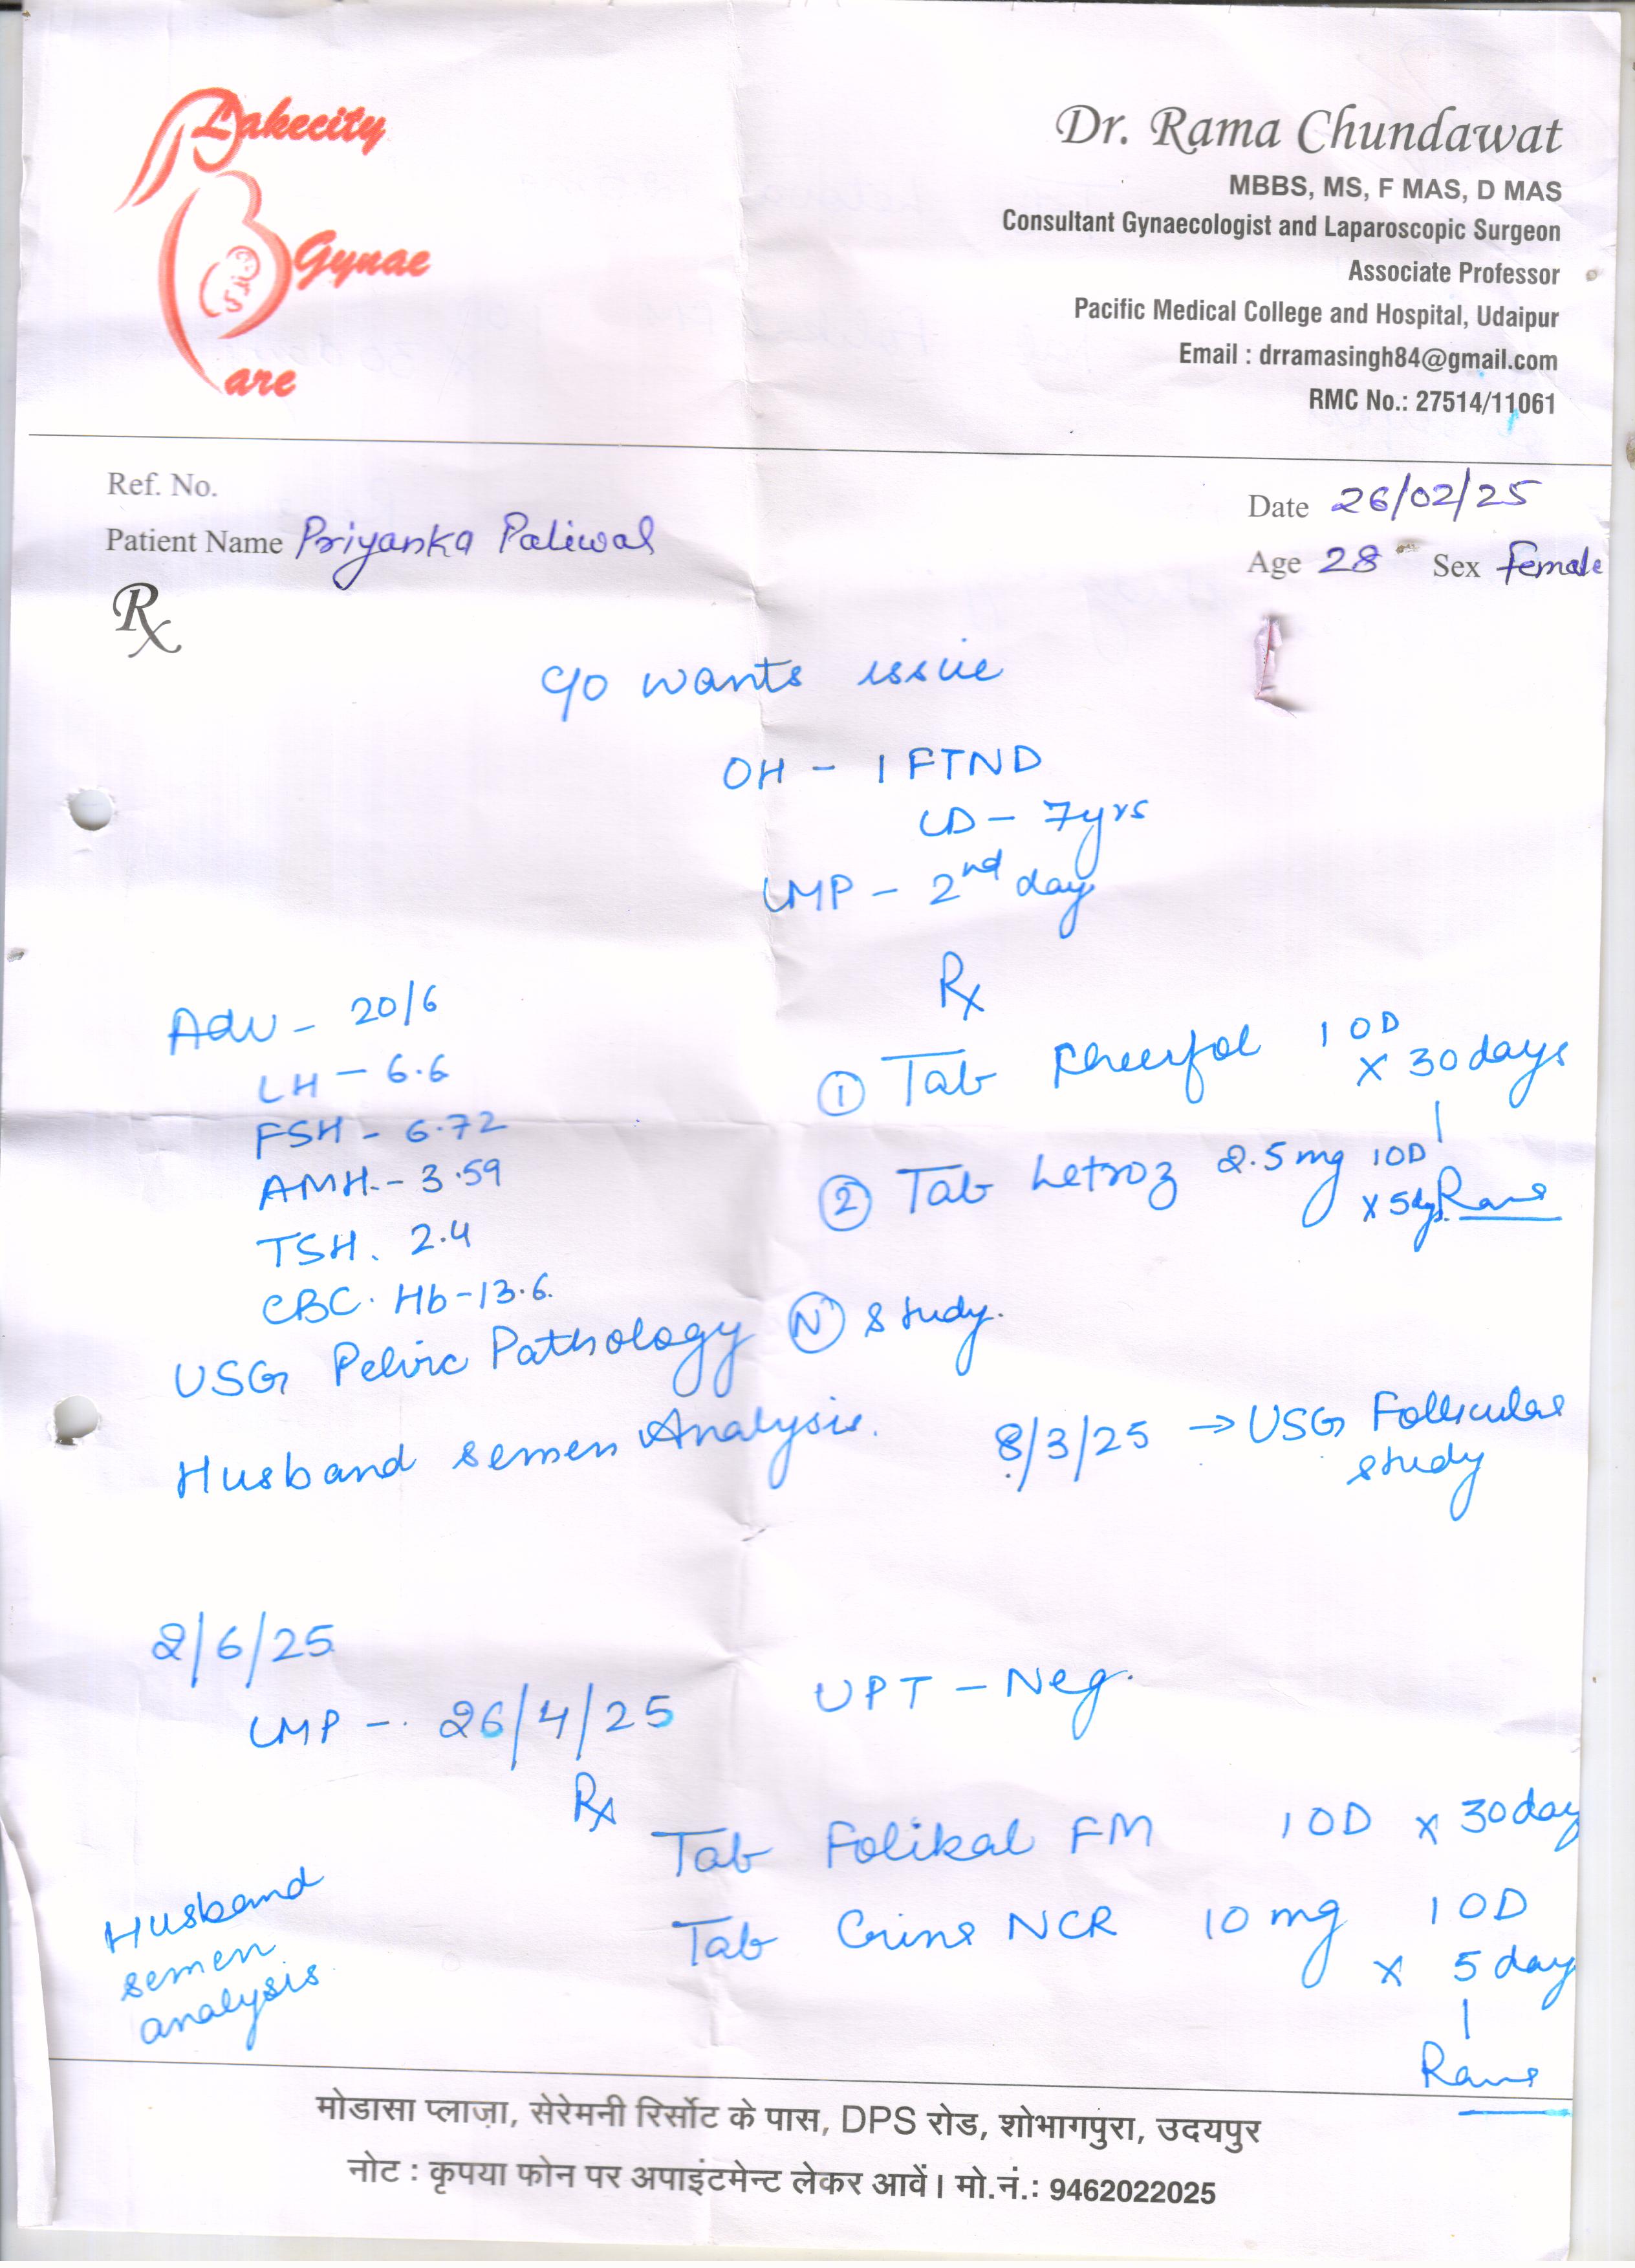 Lakecity
Gynae
Care
Dr. Rama Chundawat
MBBS, MS, F MAS, D MAS
Consultant Gynaecologist and Laparoscopic Surgeon
Associate Professor
Pacific Medical College and Hospital, Udaipur
Email : drramasingh84@gmail.com
RMC No.: 27514/11061
Ref. No.
Date 26/02/25
Patient Name Priyanka Paliwal
Age 28 Sex female
Rx
c/o wants issue
OH - 1 FTND
LD - 7yrs
LMP - 2nd day
Rx
① Tab 1 OD
x 30 days
② Tab Letroz 2.5 mg 1 OD
x 5 dys.
Adv - 20/6
LH - 6.6
FSH - 6.72
AMH - 3.59
TSH. 2.4
CBC. Hb - 13.6.
USG Pelvic Pathology N study.
Husband semen Analysis.
8/3/25 → USG Follicular
study
2/6/25
LMP - 26/4/25
UPT - Neg.
Rx
Tab Folikal FM 1 OD x 30 day
Tab NCR 10 mg 1 OD
x 5 day
Husband
semen
analysis
मोडासा प्लाज़ा, सेरेमनी रिर्सोट के पास, DPS रोड, शोभागपुरा, उदयपुर
नोट : कृपया फोन पर अपाइंटमेन्ट लेकर आवें। मो.नं.: 9462022025